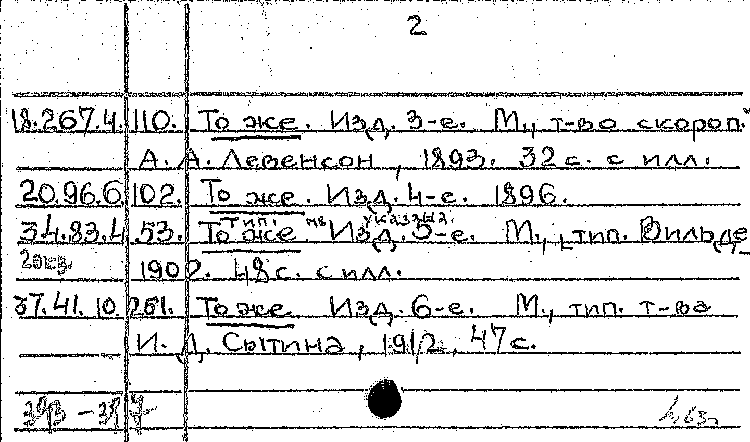 2
18.267.4.110. То же. Изд. 3-е. М., т-во скороп.
А. А. Левенсон, 1893. 32 с. с илл.
20.96.6.102. То же. Изд. 4-е. 1896.
тип. не указана.
34.83.4.53. То же Изд. 5-е. М., тип. Вильде
2 экз. 1902. 48 с. с илл.
37.41.10.251. То же. Изд. 6-е. М., тип. т-ва
И. Д. Сытина, 1912, 47 с.